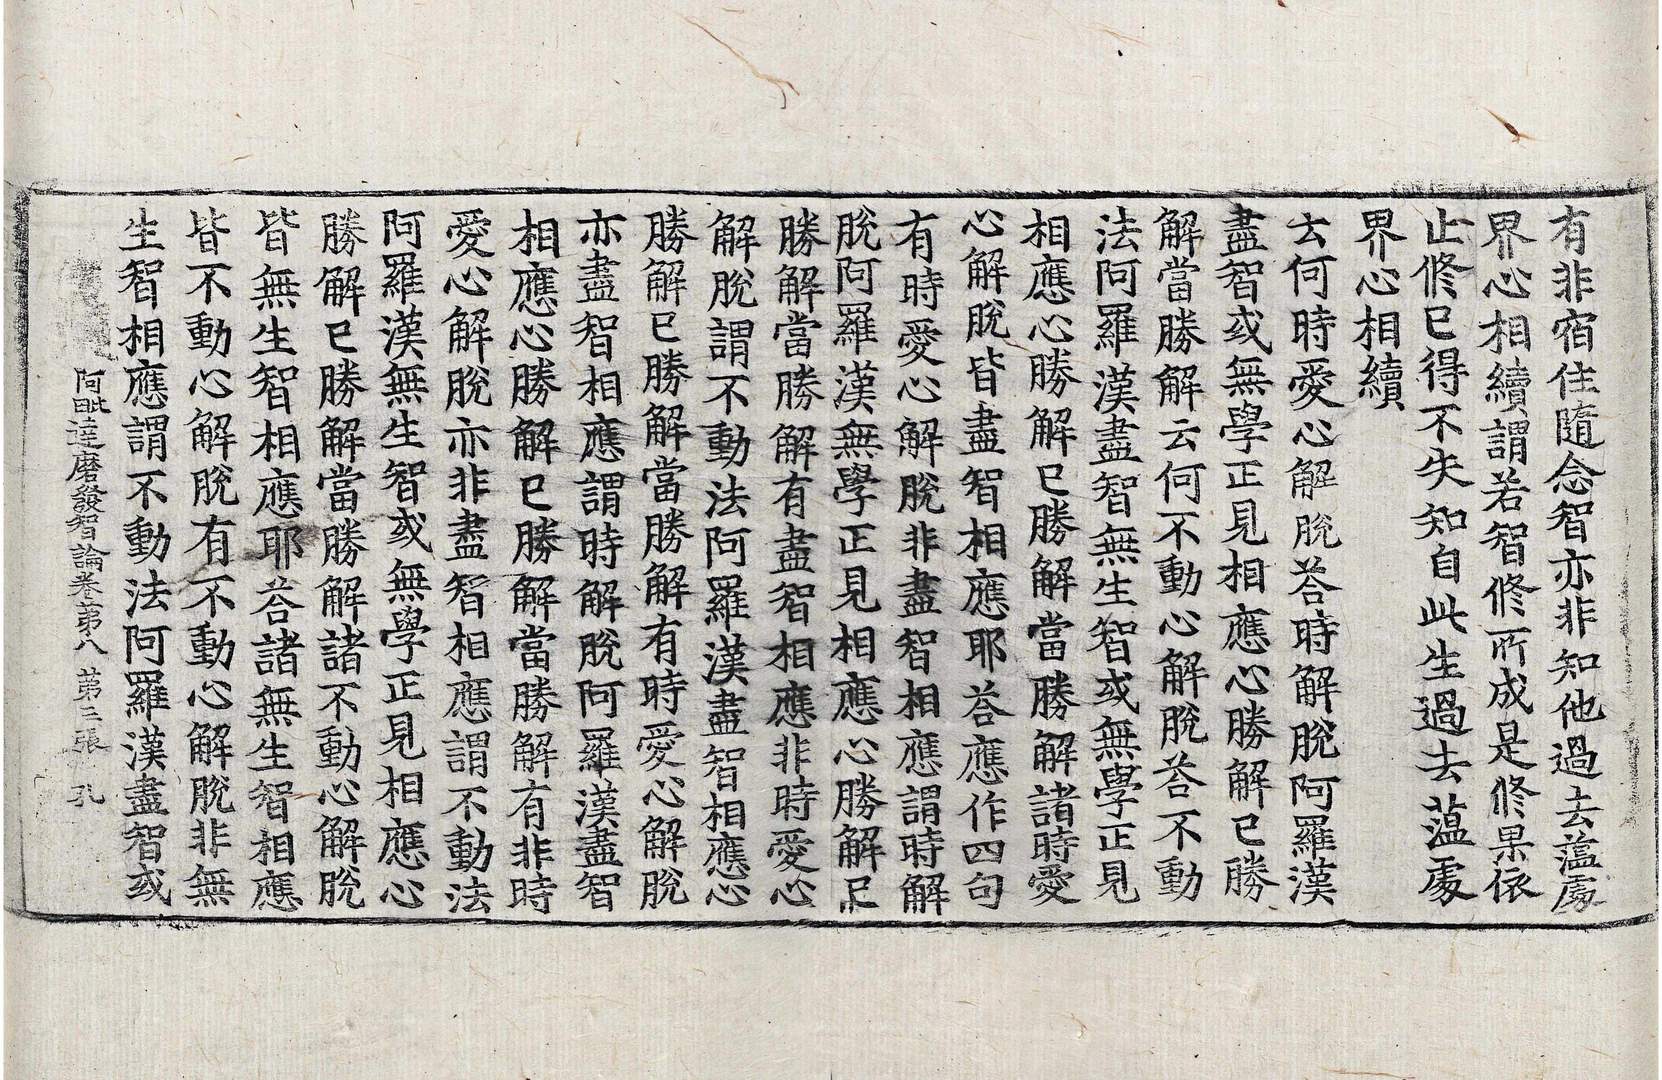 有非宿住隨念智亦非知他過去蘊處
界心相續謂若智修所成是修果依
止修已得不失知自此生過去蘊處
界心相續
云何時愛心解脫荅時解脫阿羅漢
盡智或無學正見相應心勝解已勝
解當勝解云何不動心解脫荅不動
法阿羅漢盡智無生智或無學正見
相應心勝解已勝解當勝解諸時愛
心解脫皆盡智相應耶荅應作四句
有時愛心解脫非盡智相應謂時解
脫阿羅漢無學正見相應心勝解已
勝解當勝解有盡智相應非時愛心
解脫謂不動法阿羅漢盡智相應心
勝解已勝解當勝解有時愛心解脫
亦盡智相應謂時解脫阿羅漢盡智
相應心勝解已勝解當勝解有非時
愛心解脫亦非盡智相應謂不動法
阿羅漢無生智或無學正見相應心
勝解已勝解當勝解諸不動心解脫
皆無生智相應耶荅諸無生智相應
皆不動心解脫有不動心解脫非無
生智相應謂不動法阿羅漢盡智或
阿毗達磨發智論卷第八 第三張 孔